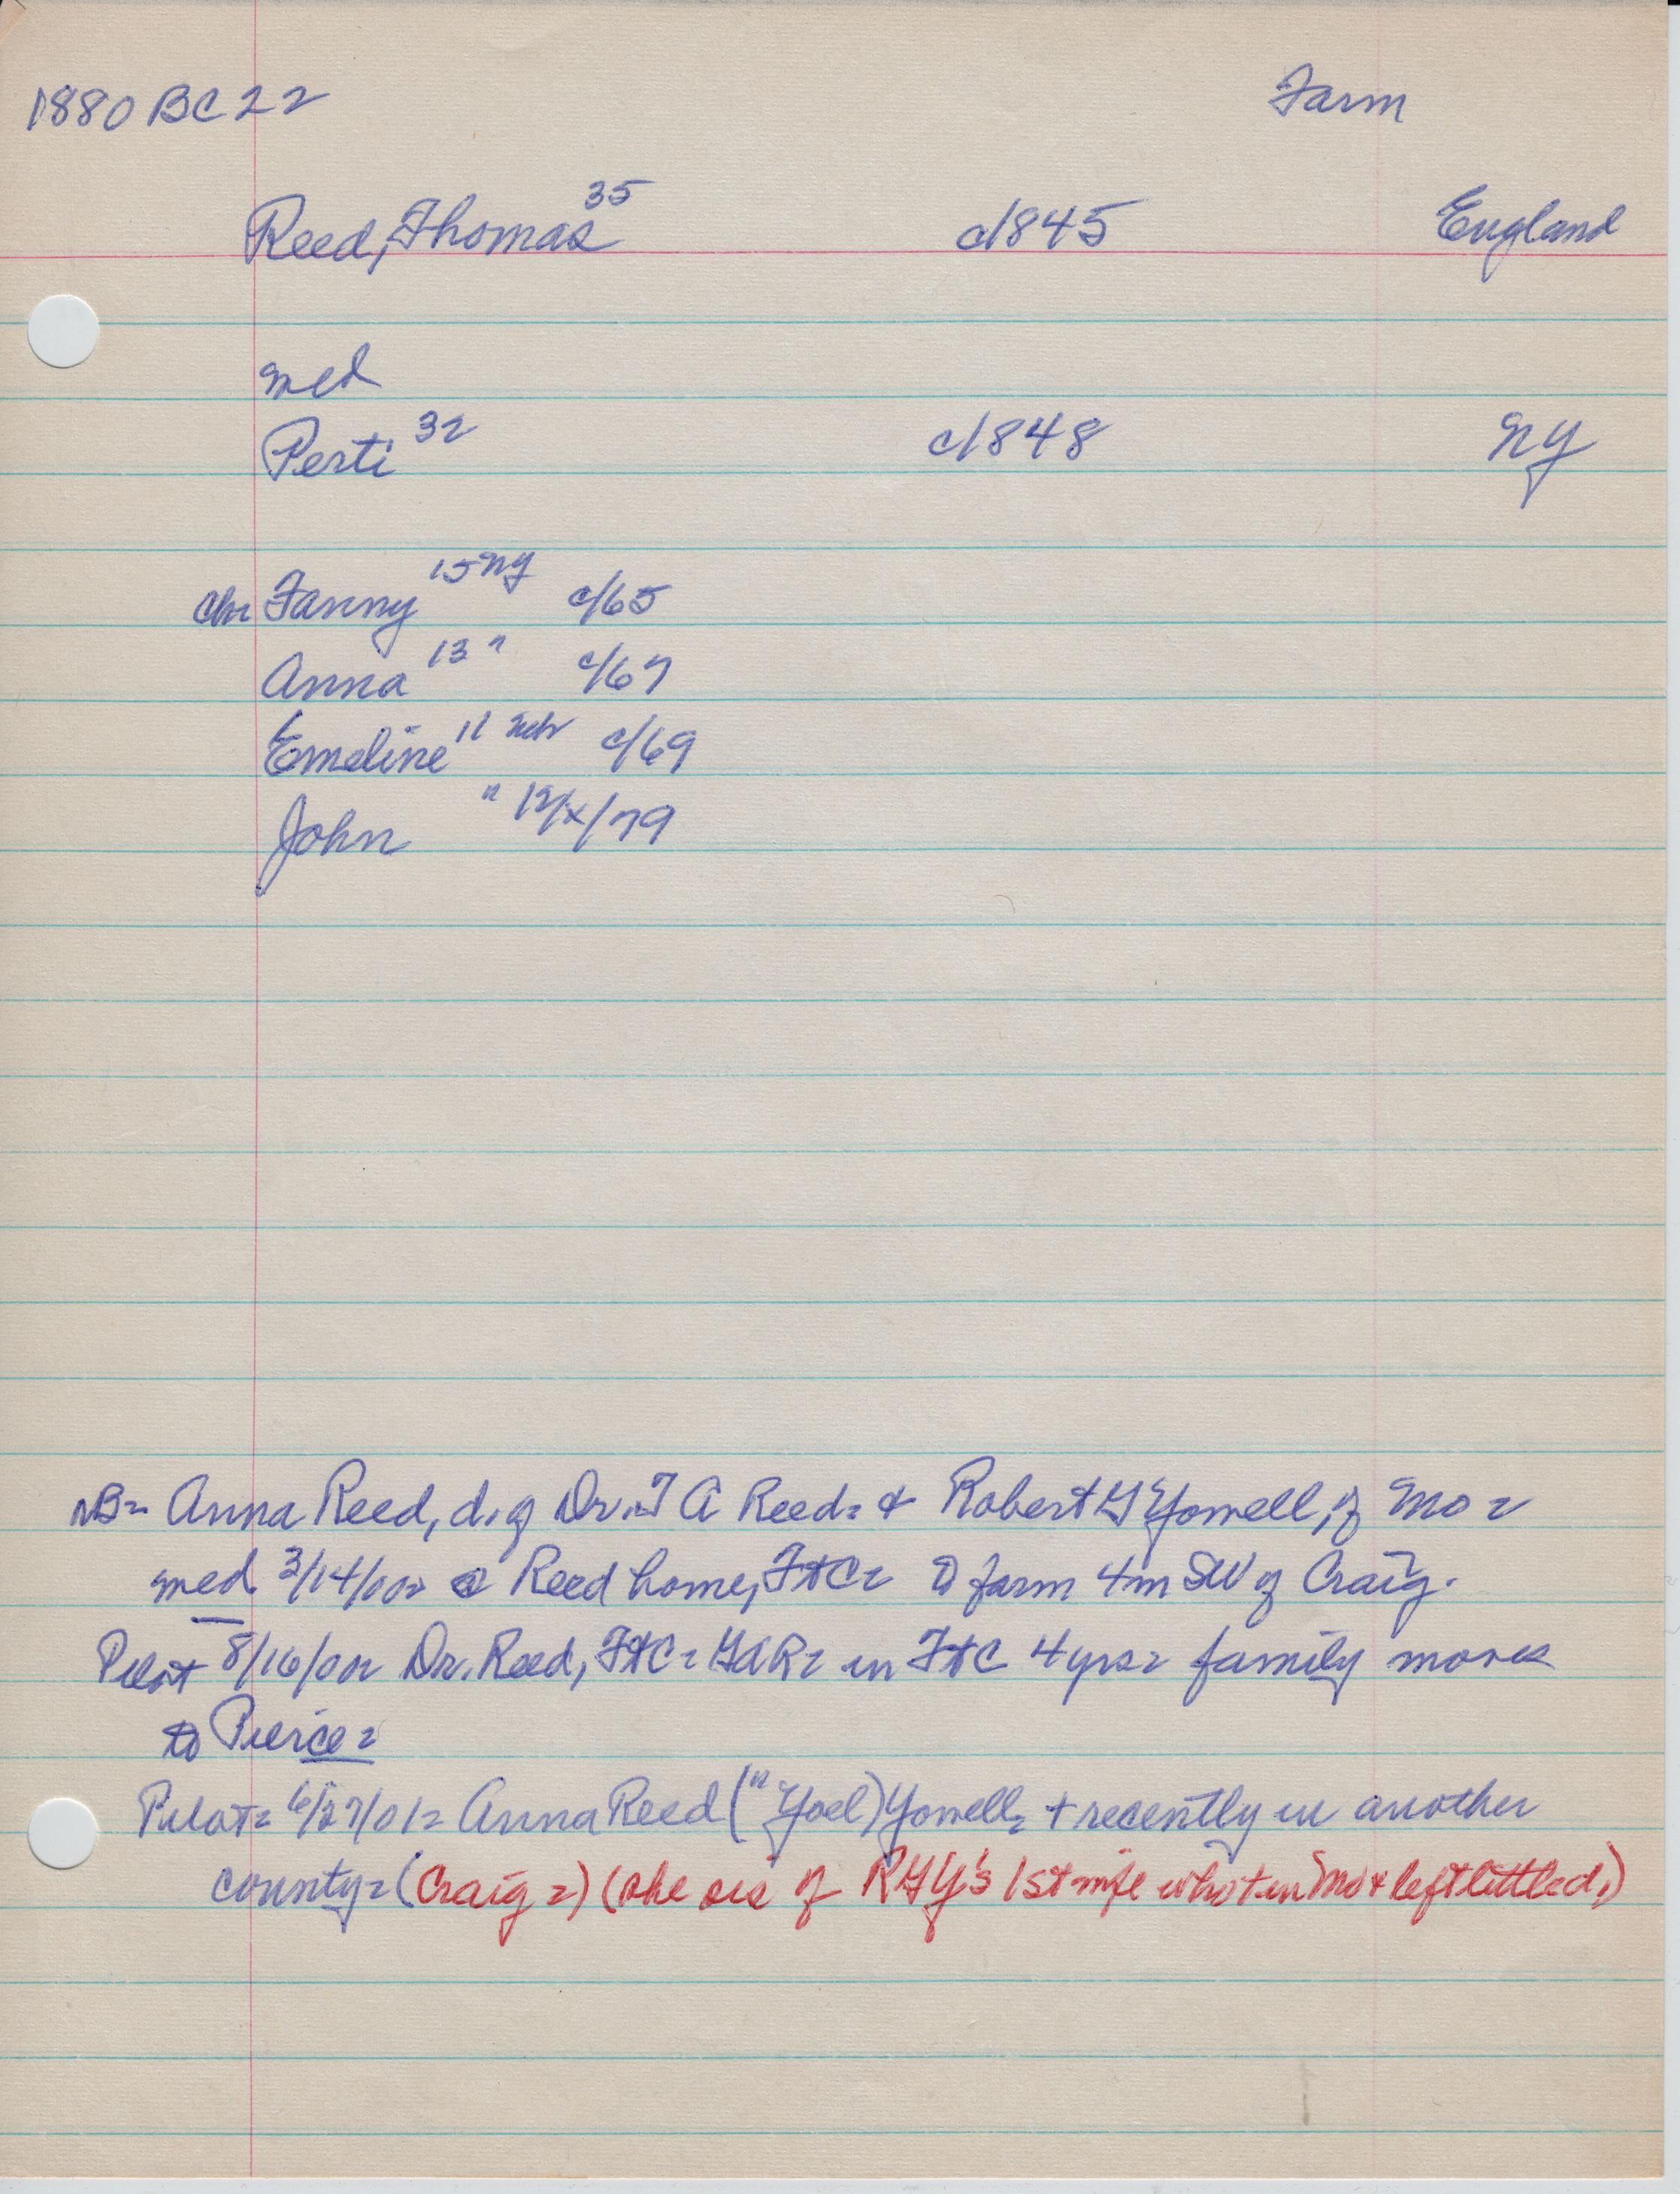 1880 BC 22 Farm
Reed, Thomas 35 c1845 England
med
Perti 32 c1848 NY
chr Fanny 15 NY c/65
Anna 13 " c/67
Emeline 11 Neb c/69
John " 12/x/79
NB= Anna Reed, d. of Dr. T A Reed= & Robert G Yowell, of Mo=
med 3/14/00= @ Reed home, FtC= to farm 4m SW of Craig.
Pilot 8/16/00= Dr. Reed, FtC= GAR= in FtC 4 yrs= family moves
to Pierce=
Pilot= 6/27/01= Anna Reed ("Yoel) Yowell= + recently in another
county= (Craig=) (she sis of RGY's 1st wife who + in Mo & left little d.)